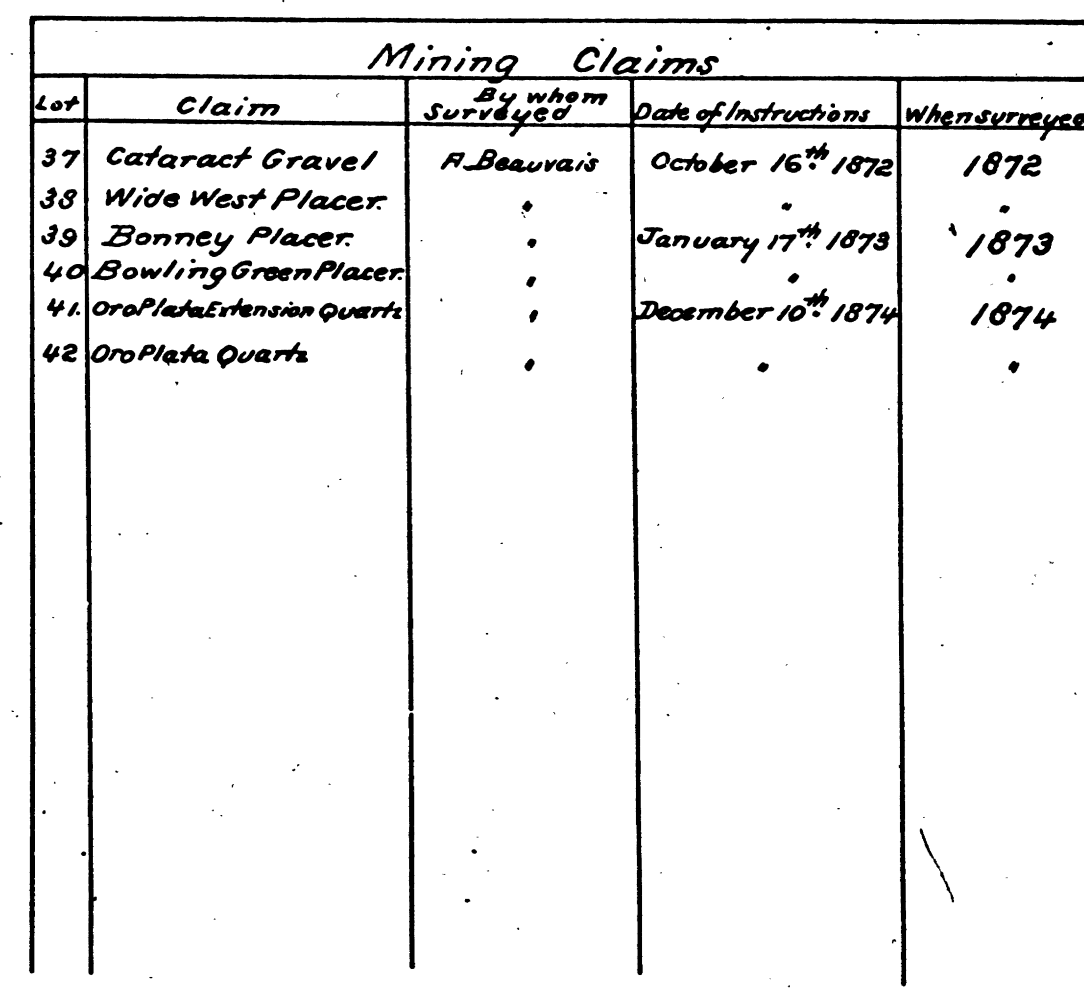 Mining Claims
Lot Claim By whom Surveyed Date of Instructions When surveyed
37 Cataract Gravel A. Beauvais October 16th 1872 1872
38 Wide West Placer. " " "
39 Bonney Placer. " January 17th 1873 1873
40 Bowling Green Placer. " " "
41. Oro Plata Extension Quartz " December 10th 1874 1874
42 Oro Plata Quartz " " "